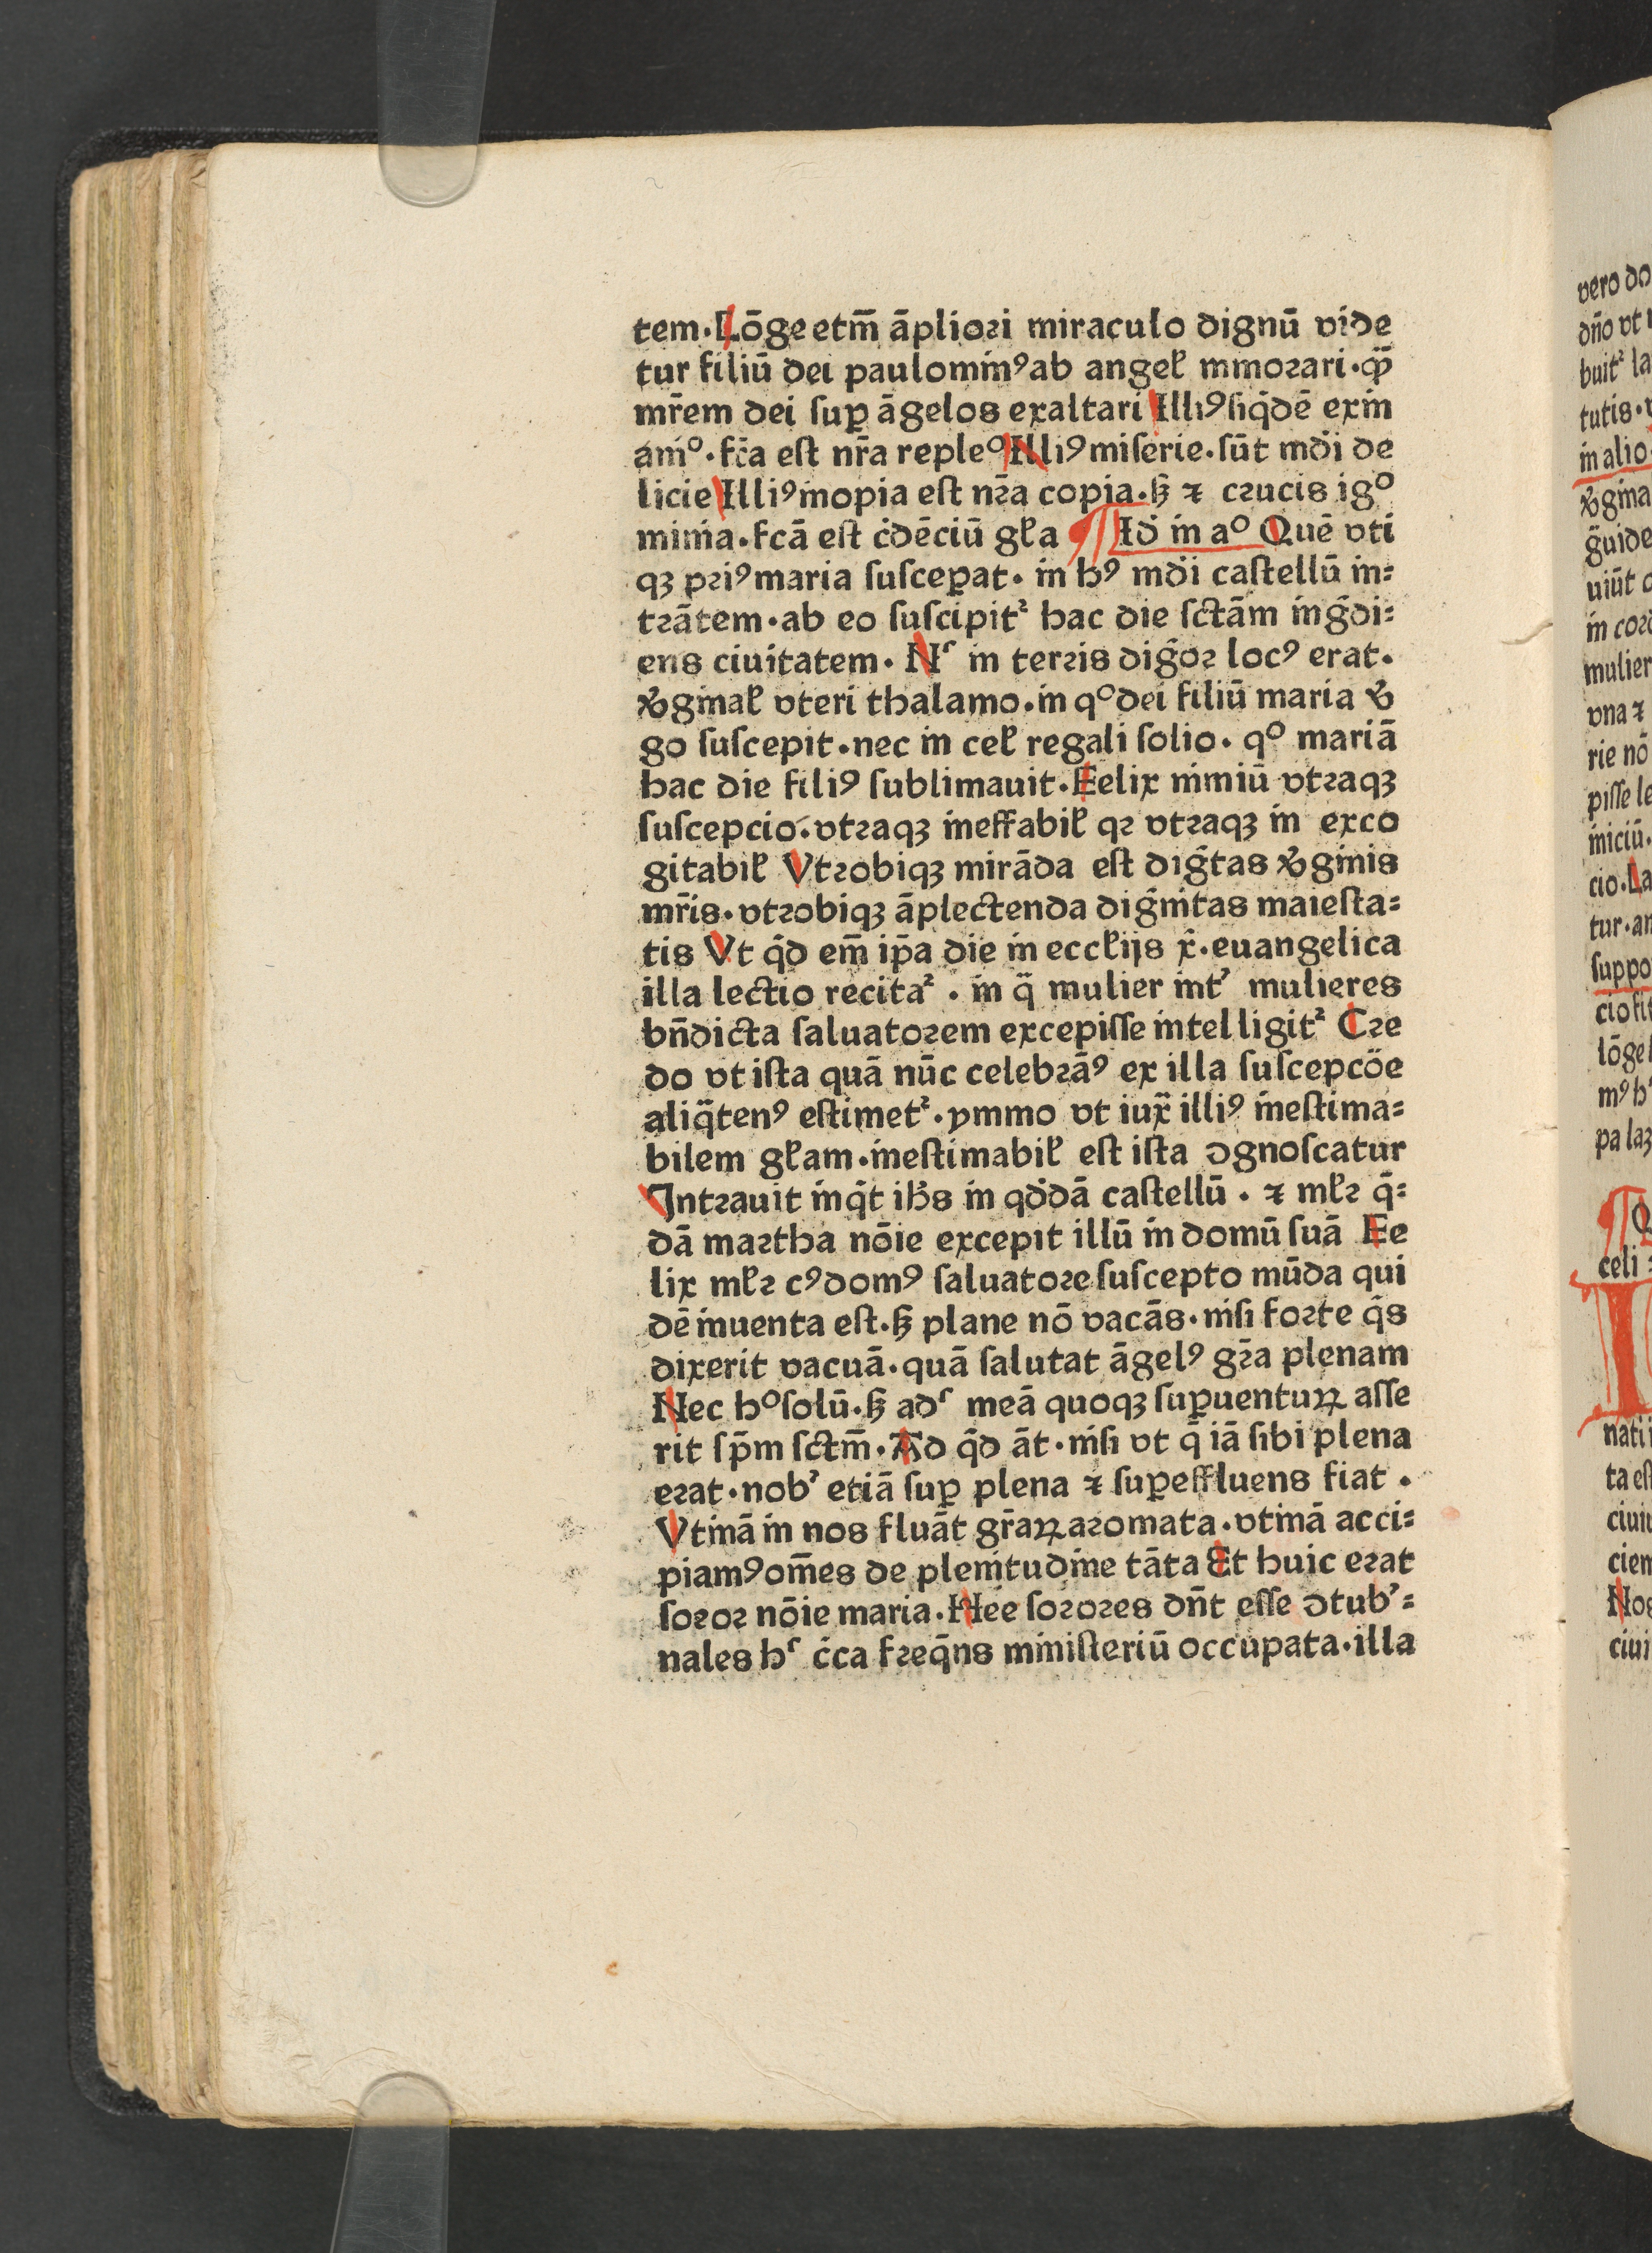 tem·Lōge etm̄ āpliori miraculo dignū vide
tur filiū dei paulomin᷒ꝯ ab angeł minorari·qꝫ̄
mr̄em dei suꝑ āgelos exaltari Illiꝯ siq̇dē exin
aniͦ·fc̄a est nr̄a repleͦ Illiꝯ miserie·sūt mdi̇ de
licie Illiꝯ inopia est nr̄a copia·sꝫ ⁊ crucis igͦ
minia·fcā est ċdēciū gła ¶ Id̓ in aͦ Quē vti
qꝫ priꝯ maria susceꝑat·in hꝯ mdi̇ castellū in⸗
trātem·ab eo suscipitᷣ hac die sctām inḡdi⸗
ens ciuitatem·Nᷤ in terris diḡor locꝯ erat·
v̓ginał vteri thalamo·in qͦ dei filiū maria v̓
go suscepit·nec in ceł regali solio·qͦ mariā
hac die filiꝯ sublimauit·Felix nimiū vtraqꝫ
suscepcio·vtraqꝫ ineffabił qr vtraqꝫ in exco
gitabił Vtrobiqꝫ mirāda est diḡtas v̓ginis
mr̄is·vtrobiqꝫ āplectenda diḡnitas maiesta⸗
tis Vt q̄d em̄ ip̄a die in eccłijs x̄·euangelica
illa lectio recitaᷣ·in q̄ mulier intʼ mulieres
bn̄dicta saluatorem excepisse intelligitᷣ Cre
do vt ista quā nūc celebrāꝯ ex illa suscepcōe
aliq̄tenꝯ estimetᷣ·ymmo vt iux̄ illiꝯ inestima⸗
bilem głam·inestimabił est ista ꝯgnoscatur
Intrauit inq̇t ihs̄ in qd̓dā castellū·⁊ młr q̄⸗
dā martha nōie excepit illū in domū suā Fe
lix młr cꝯ domꝯ saluatore suscepto mūda qui
dē inuenta est·sꝫ plane nō vacās·nisi forte q̇s
dixerit vacuā·quā salutat āgelꝯ gr̄a plenam
Nec hͦ solū·sꝫ adᷤ meā quoqꝫ suꝑuentuꝝ asse
rit sp̄m sctm̄·Ad q̄d āt·nisi vt q̄ iā sibi plena
erat·nobʼ etiā suꝑ plena ⁊ suꝑeffluens fiat·
Vtinā in nos fluāt gr̄aꝝ aromata·vtinā acci⸗
piamꝯ om̄es de plenitudine tāta Et huic erat
soror nōie maria·Hee sorores dn̄t esse ꝯtubʼ⸗
nales hᷤ c̄ca freq̄ns ministeriū occupata·illa